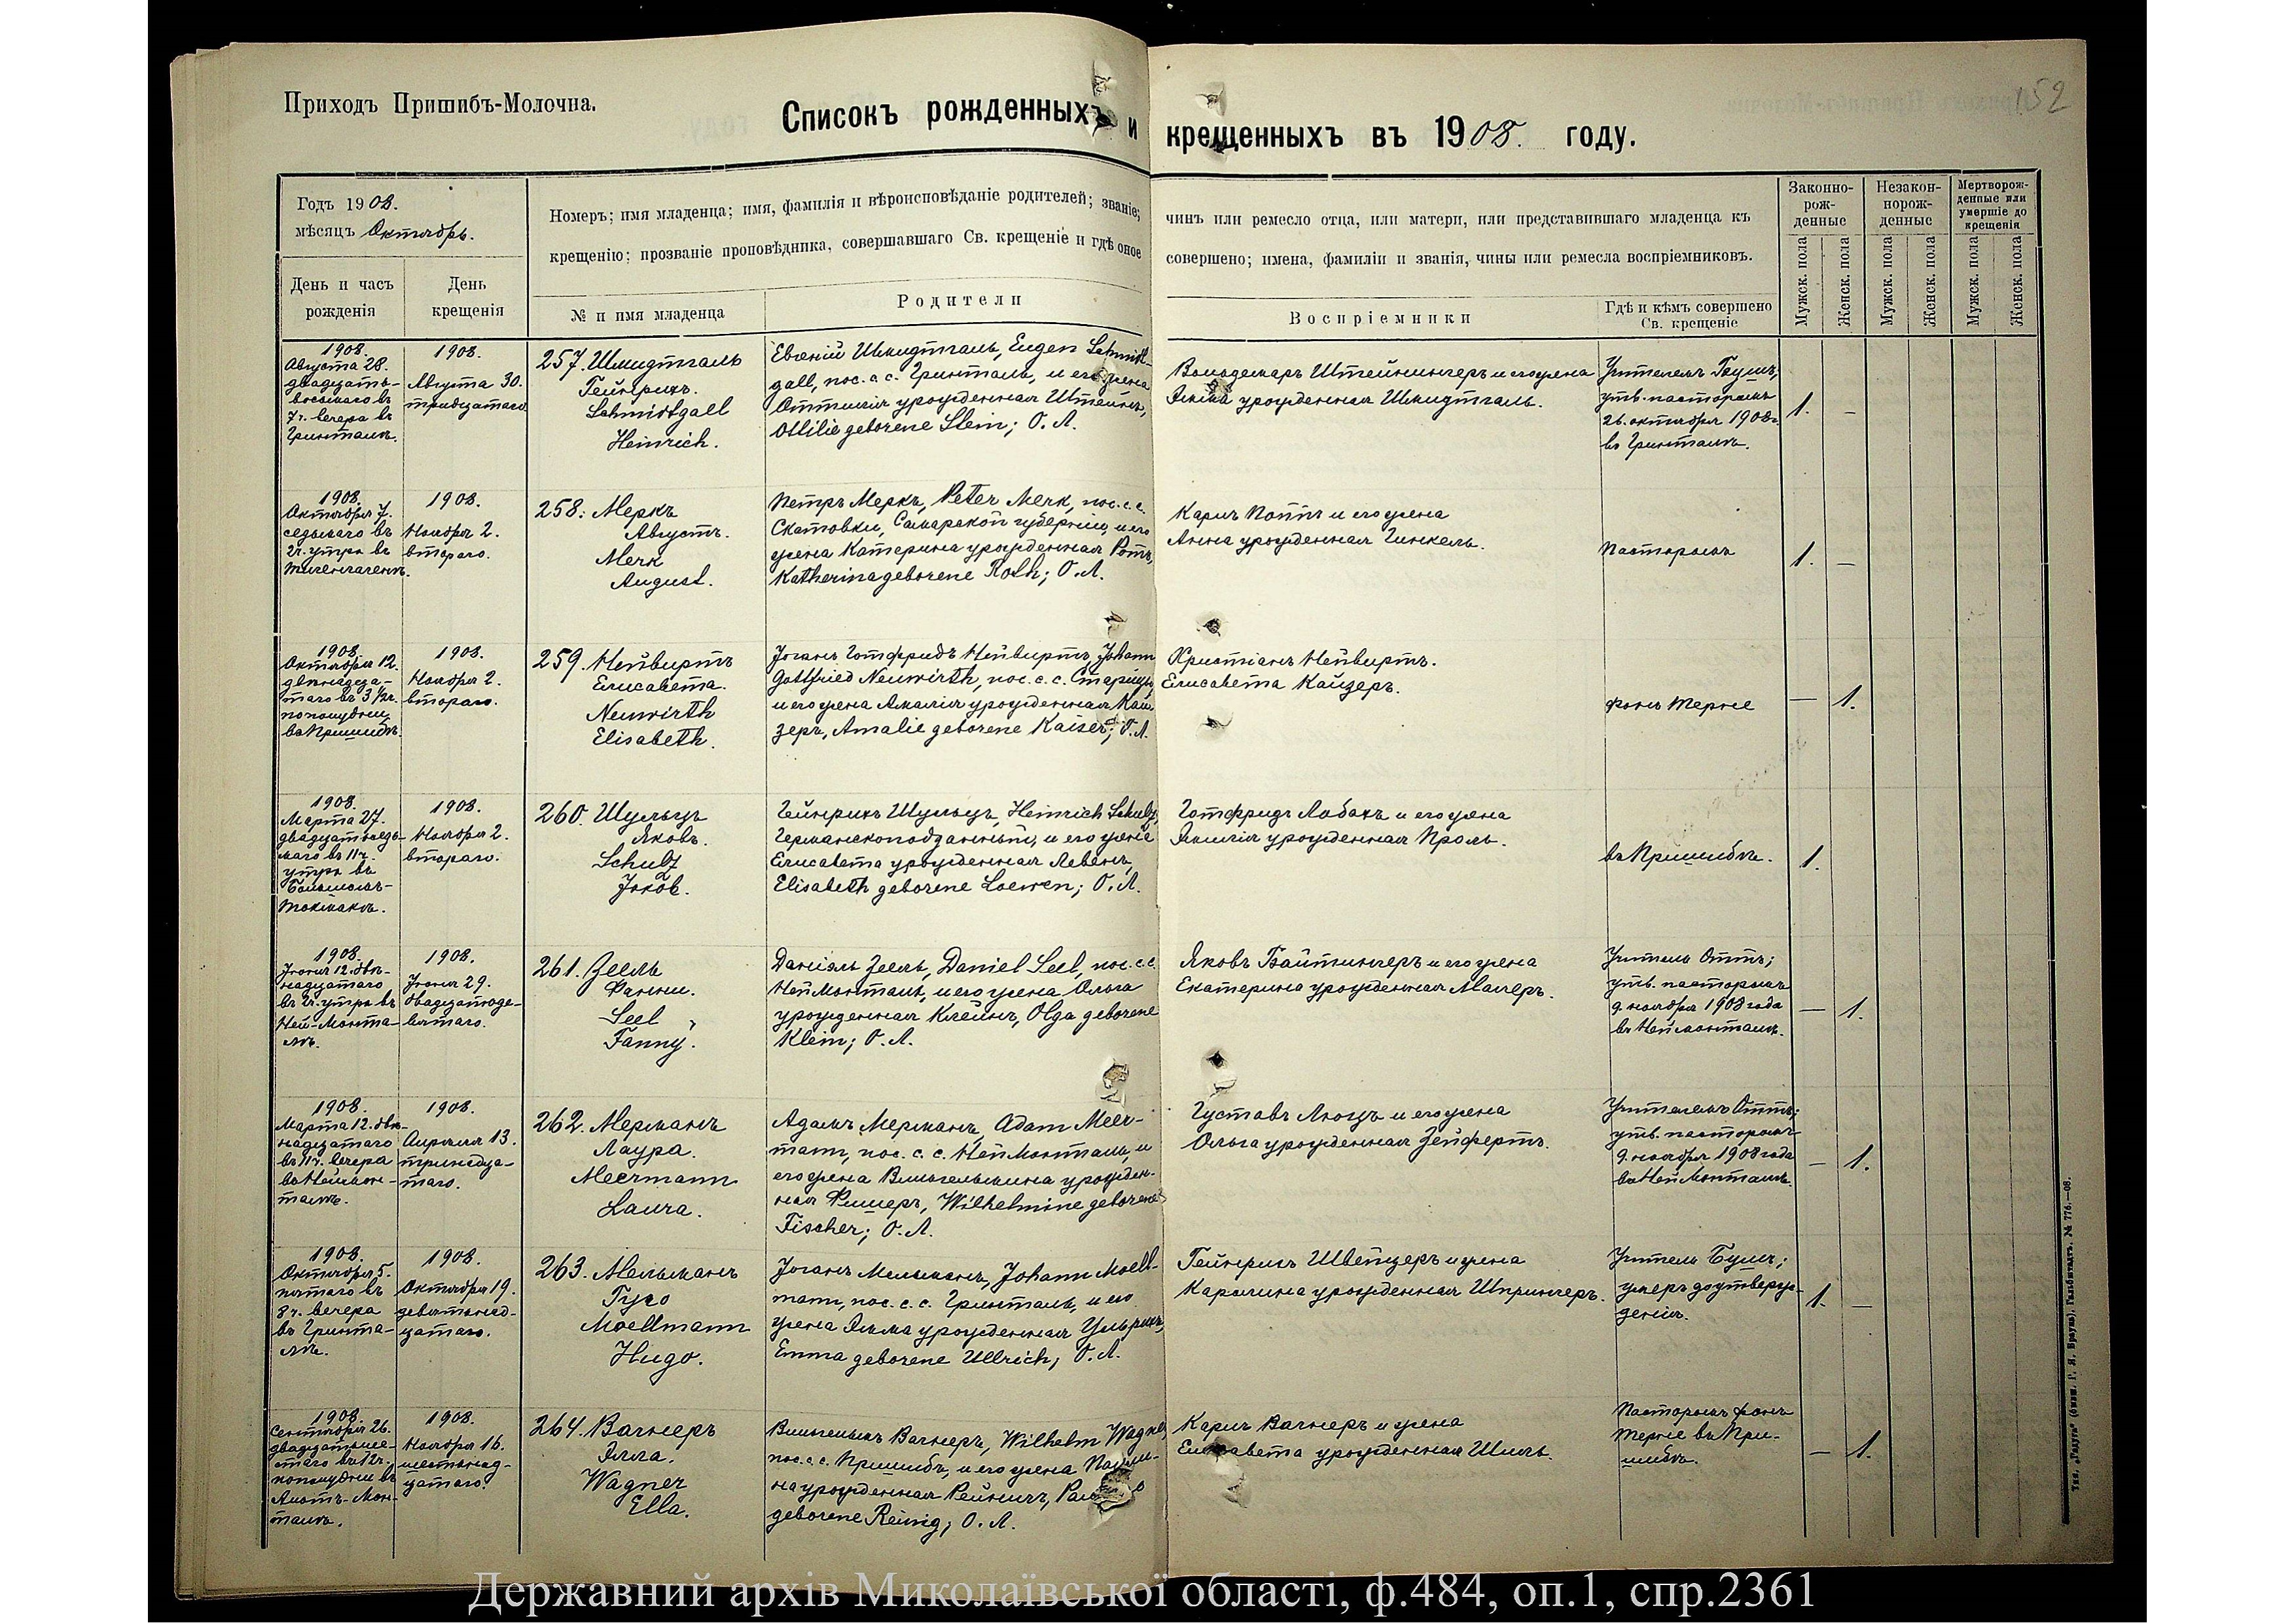 Приходъ Пришибъ-Молочна.
152
Списокъ рожденныхъ и крещенныхъ въ 1908. году.
Годъ 1908.
мѣсяцъ Октябрь.
Номеръ; имя младенца; имя, фамилія и вѣроисповѣданіе родителей; званіе;
чинъ или ремесло отца, или матери, или представившаго младенца къ
крещенію; прозваніе проповѣдника, совершавшаго Св. крещеніе и гдѣ оное
совершено; имена, фамиліи и званія, чины или ремесла воспріемниковъ.
День и часъ
рожденія
День
крещенія
№ и имя младенца
Родители
Воспріемники
Гдѣ и кѣмъ совершено
Св. крещеніе
Законно-
рож-
денные
Незакон-
норож-
денные
Мертворож-
денные или
умершіе до
крещенія
Мужск. пола
Женск. пола
Мужск. пола
Женск. пола
Мужск. пола
Женск. пола
1908.
Августа 28.
двадцать-
восьмаго въ
7 ч. вечера въ
Гринталѣ.
1908.
Августа 30.
тридцатаго.
257. Шмидтгаль
Гейнрихъ.
Schmidtgall
Heinrich.
Евгеній Шмидтгаль, Eugen Schmidt-
gall, пос. с. с. Гринталь, и его жена
Оттилія урожденная Штейнъ,
Ottilie geborene Stein; О. Л.
Вольдемаръ Штейнингеръ и его жена
урожденная Шмидтгаль.
Учителемъ Бушъ,
утв. пасторомъ
26. октября 1908 г.
въ Гринталѣ.
1. –
1908.
Октября 7.
седьмаго въ
2 ч. утра въ
Тигенгагенѣ.
1908.
Ноября 2.
втораго.
258. Меркъ
Августъ.
Merk
August.
Петръ Меркъ, Peter Merk, пос. с. с.
Скатовки, Самарской губерніи, и его
жена Катерина урожденная Ротъ,
Katherina geborene Roth; О. Л.
Карлъ Поппъ и его жена
Анна урожденная Гинкель.
Пасторомъ
1. –
1908.
Октября 12.
двѣнадца-
таго въ 3 1/2 ч.
пополудни
въ Пришибѣ.
1908.
Ноября 2.
втораго.
259. Нейвиртъ
Елисавета.
Neuwirth
Elisabeth.
Іоганъ Готфридъ Нейвиртъ, Johann
Gottfried Neuwirth, пос. с. с.
и его жена Амалія урожденная Кай-
зеръ, Amalie geborene Kaiser; О. Л.
Христіанъ Нейвиртъ.
Елисавета Кайзеръ.
фонъ Терне
– 1.
1908.
Марта 27.
двадцатьседь-
маго въ 11 ч.
утра въ
Большомъ-
Токмакѣ.
1908.
Ноября 2.
втораго.
260. Шульцъ
Яковъ.
Schulz
Jakob.
Гейнрихъ Шульцъ, Heinrich Schulz,
Германскоподданный, и его жена
Елисавета урожденная Левенъ,
Elisabeth geborene Loewen; О. Л.
Готфридъ Лабахъ и его жена
Эмилія урожденная Проль.
въ Пришибѣ.
1.
1908.
Іюня 12. двѣ-
надцатаго
въ 2 ч. утра въ
Ней-Монта-
лѣ.
1908.
Іюня 29.
двадцатоде-
вятаго.
261. Зеель
Фанни.
Seel,
Fanny.
Даніэль Зеель, Daniel Seel, пос. с. с.
Ней Монталь, и его жена Ольга
урожденная Клейнъ, Olga geborene
Klein; О. Л.
Яковъ Байтингеръ и его жена
Екатерина урожденная Магеръ.
Учитель Оттъ;
утв. пасторомъ
9. ноября 1908 года
въ Ней Монталѣ.
– 1.
1908.
Марта 12. двѣ-
надцатаго
въ 11 ч. вечера
въ Неймон-
талѣ.
1908.
Апрѣля 13.
тринадца-
таго.
262. Мерманъ
Лаура.
Meermann
Laura.
Адамъ Мерманъ, Adam Meer-
mann, пос. с. с. Ней Монталь, и
его жена Вильгельмина урожден-
ная Фишеръ, Wilhelmine geborene
Fischer; О. Л.
Густавъ Люцъ и его жена
Ольга урожденная Зейфертъ.
Учителемъ Оттъ;
утв. пасторомъ
9. ноября 1908 года
въ Ней Монталѣ.
– 1.
1908.
Октября 5.
пятаго въ
8 ч. вечера
въ Гринта-
лѣ.
1908.
Октября 19.
девятьнад-
цатаго.
263. Мельманъ
Гуго
Moellmann
Hugo.
Іоганъ Мельманъ, Johann Moell-
mann, пос. с. с. Гринталь, и его
жена Эмма урожденная Ульрихъ,
Emma geborene Ullrich; О. Л.
Гейнрихъ Швейцеръ и жена
Каролина урожденная Шпрингеръ.
Учитель Бушъ;
умеръ до утверж-
денія.
1. –
1908.
Сентября 26.
двадцатьше-
стаго въ 12 ч.
пополудни въ
Альтъ-Мон-
талѣ.
1908.
Ноября 16.
шестьнад-
цатаго.
264. Вагнеръ
Элла.
Wagner
Ella.
Вильгельмъ Вагнеръ, Wilhelm Wagner,
пос. с. с. Пришибъ, и его жена Паули-
на урожденная Рейнигъ,
geborene Reinig; О. Л.
Карлъ Вагнеръ и жена
Елисавета урожденная Шиль.
Пасторомъ фонъ
Терне въ При-
шибѣ.
– 1.
Тип. „Радуга“ (бывш. Г. Я. Браунъ), Гальбштадтъ. № 776.—08.
Державний архів Миколаївської області, ф.484, оп.1, спр.2361